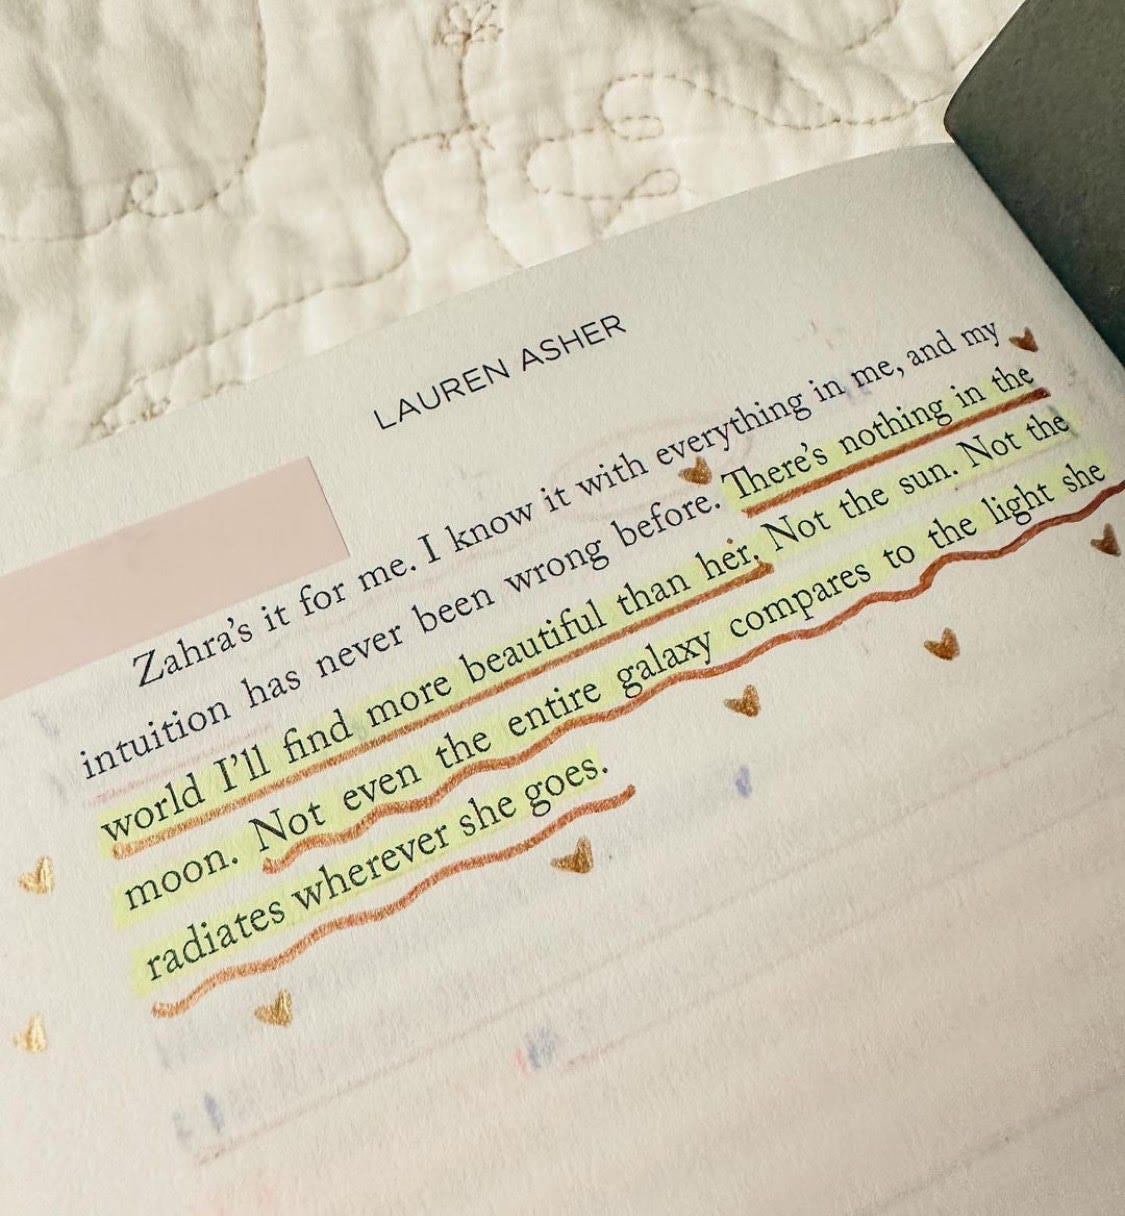 LAUREN ASHER
Zahra's it for me. I know it with everything in me, and my
intuition has never been wrong before. There's nothing in the
world I'll find more beautiful than her. Not the sun. Not the
moon. Not even the entire galaxy compares to the light she
radiates wherever she goes.